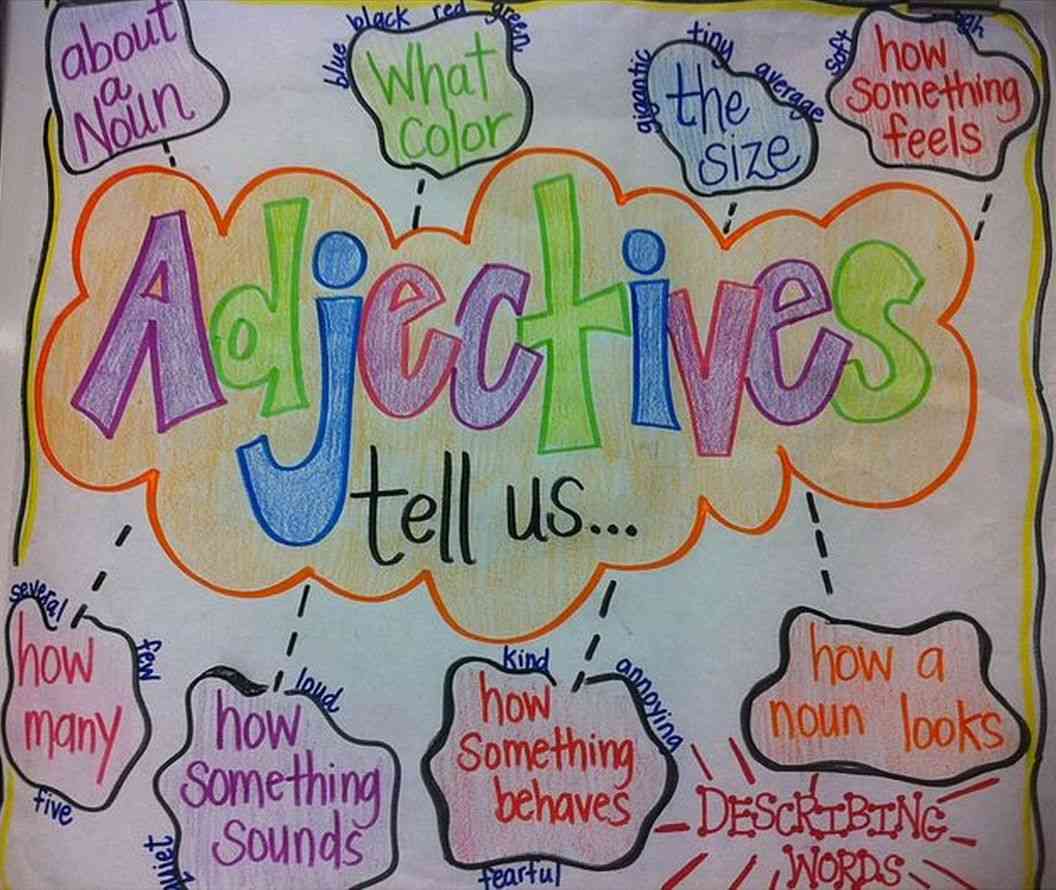 about
a
Noun
black red green
blue
What
color
tiny
gigantic
average
the
size
soft
how
something
feels
Adjectives
tell us...
several
how
many
few
five
loud
how
something
sounds
quiet
kind
annoying
how
something
behaves
fearful
how a
noun looks
DESCRIBING
WORDS